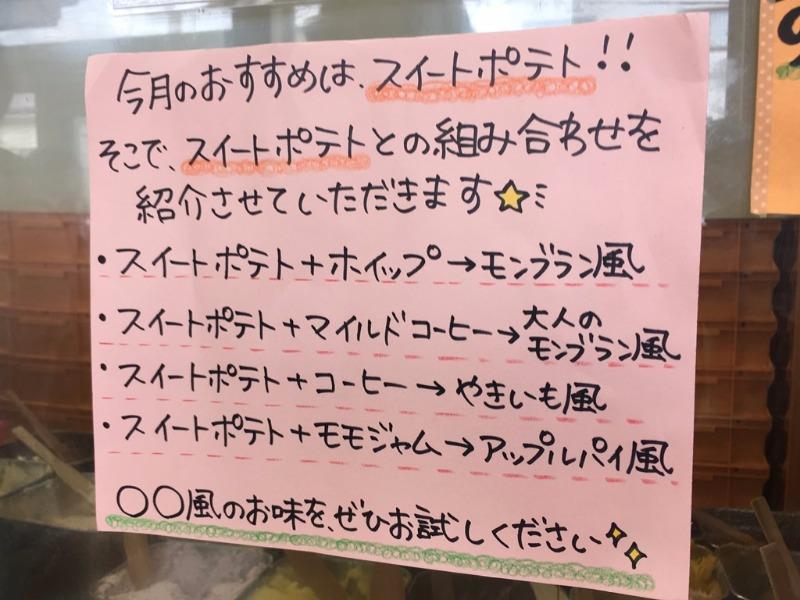 今月のおすすめは、スイートポテト!!
そこで、スイートポテトとの組み合わせを
紹介させていただきます☆ミ
・スイートポテト+ホイップ→モンブラン風
・スイートポテト+マイルドコーヒー→大人の
モンブラン風
・スイートポテト+コーヒー→やきいも風
・スイートポテト+モモジャム→アップルパイ風
〇〇風のお味を、ぜひお試しください